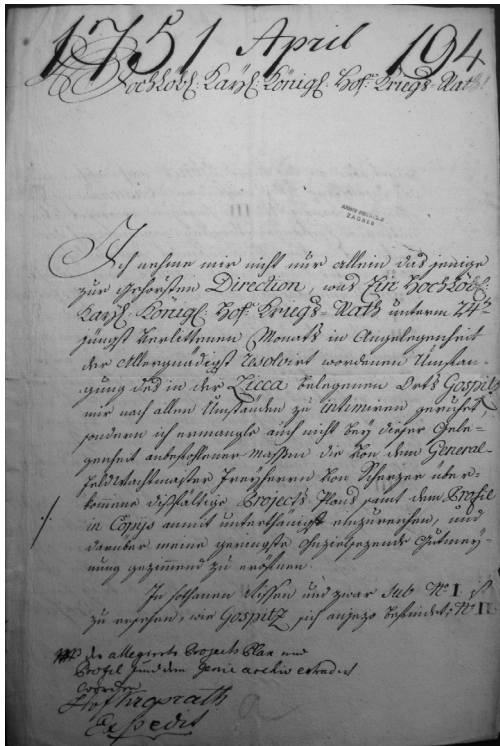 1751 April 194
Hochlöbl: Kayl: Königl: Hof: Kriegs-Rath!
ARHIV
ZAGREB
Ich nehme mir nicht nur allein das jenige
zur gehorsten Direction, was Ein Hochlöbl:
Kayl: Königl: Hof: Kriegs-Rath unterm 24ten
jüngst verlittenen Monats in Angelegenheit
der Allergnädigst resolvirt wordenen Umstan-
gung des in der Licca belegenen Orts Gospitz
mir nach allen Umständen zu intimiren geruhet,
sondern ich ermangle auch nicht bey dieser Gele-
genheit anbefohlener Massen die von dem General-
Feldwachtmaister Freyherrn von Scherzer über-
kommene dißfällige Projects Plans samt dem Profil
in Copijs anmit unterthänigst einzureichen, und
darüber meine geringste ohnzielsezende Gutmey-
nung gezimmend zu eröffnen.
In sothanen Rissen und zwar sub No I. ist
zu ersehen, wie Gospitz sich anjezo befindet; No II
der allegirte Projects Plan und
Profil seind dem Genie archiv extradirt
worden
Hofkriegsrath
Expedit